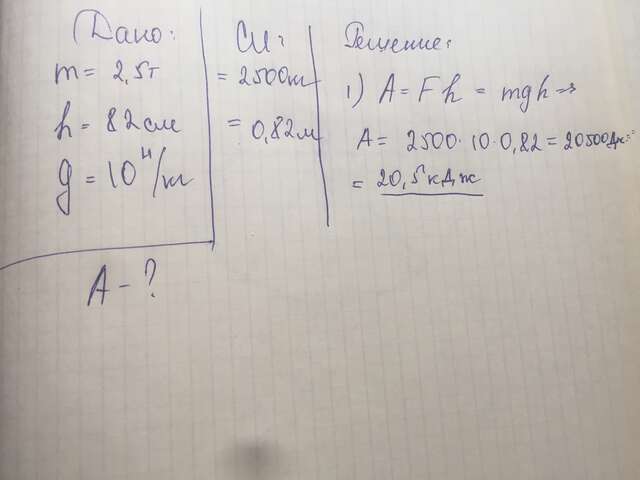 Дано:
m = 2,5т
h = 82см
g = 10 Н/кг
A - ?
СИ:
= 2500кг
= 0,82м
Решение:
1) A = Fh = mgh =>
A = 2500·10·0,82 = 20500Дж=
= 20,5кДж